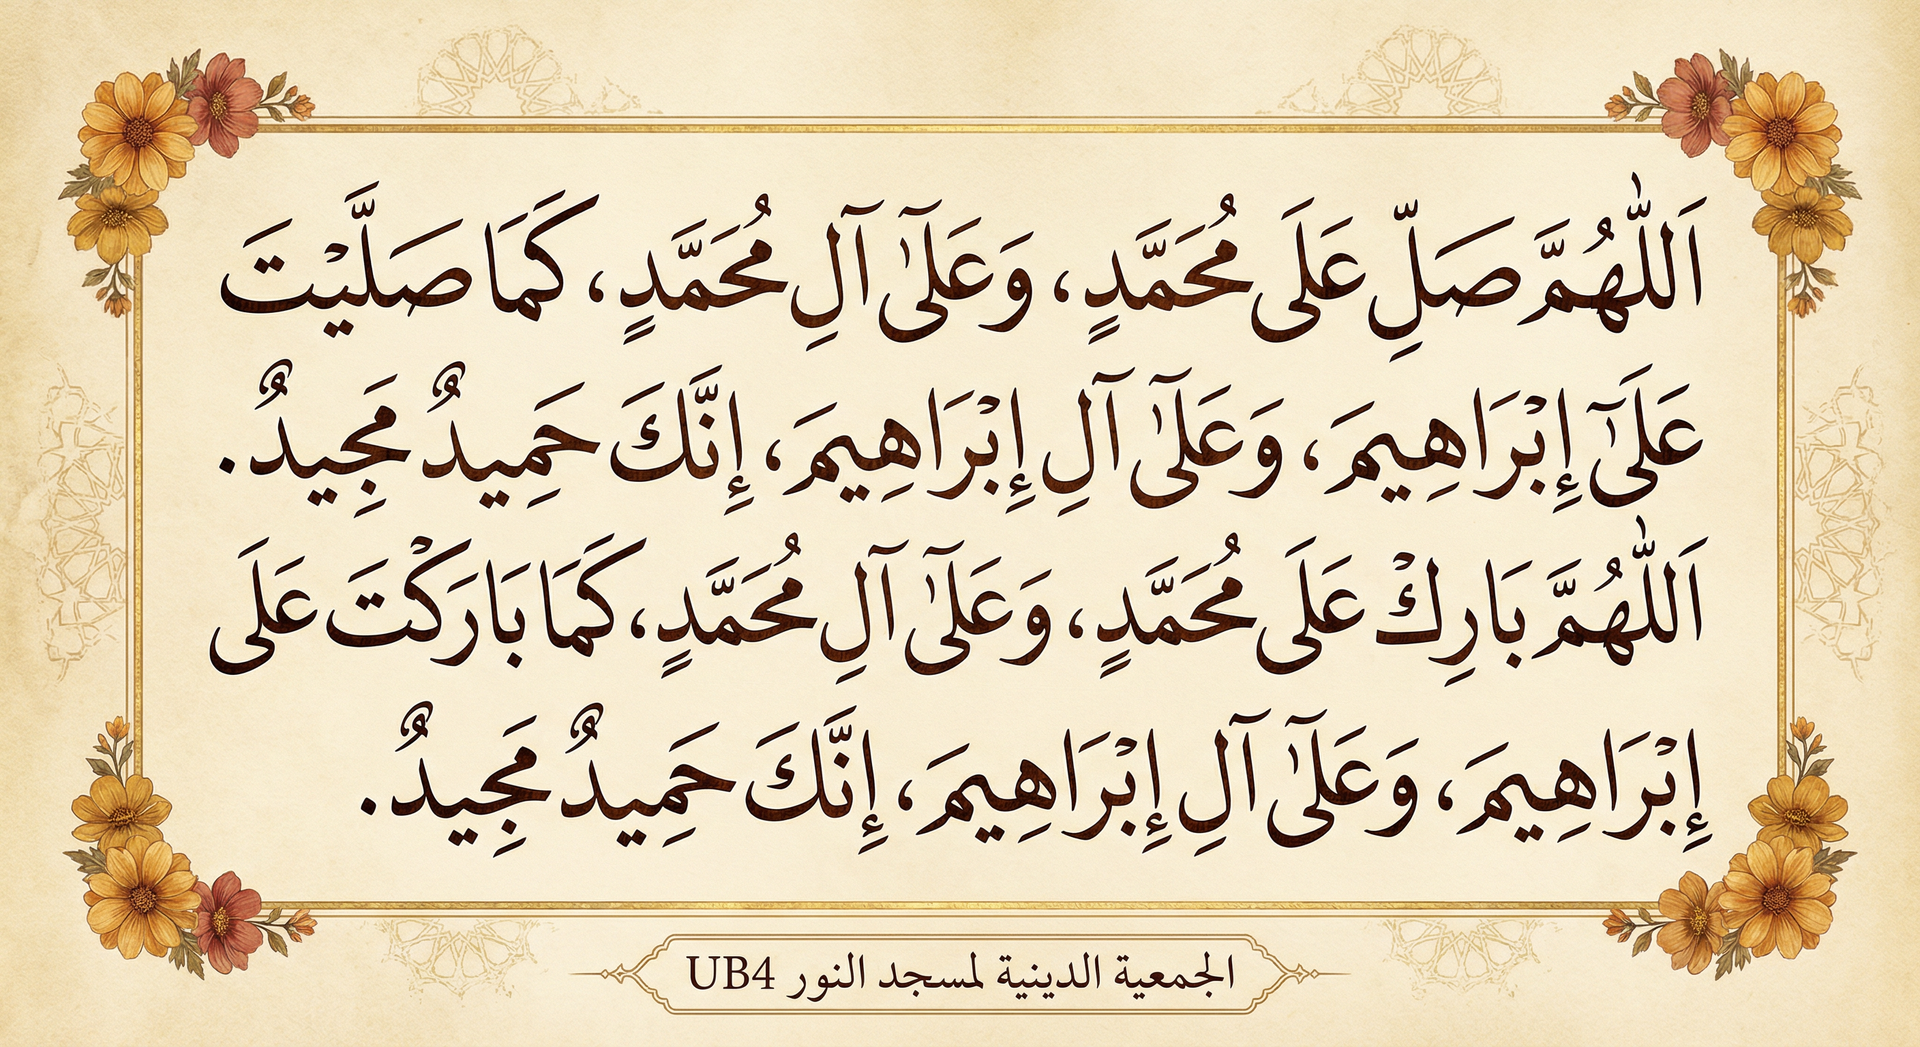 اَللّٰهُمَّ صَلِّ عَلَى مُحَمَّدٍ، وَعَلَىٰٓ آلِ مُحَمَّدٍ، كَمَا صَلَّيْتَ
عَلَىٰٓ إِبْرَاهِيمَ، وَعَلَىٰٓ آلِ إِبْرَاهِيمَ، إِنَّكَ حَمِيدٌ مَجِيدٌ.
اَللّٰهُمَّ بَارِكْ عَلَى مُحَمَّدٍ، وَعَلَىٰٓ آلِ مُحَمَّدٍ، كَمَا بَارَكْتَ عَلَى
إِبْرَاهِيمَ، وَعَلَىٰٓ آلِ إِبْرَاهِيمَ، إِنَّكَ حَمِيدٌ مَجِيدٌ.
الجمعية الدينية لمسجد النور UB4